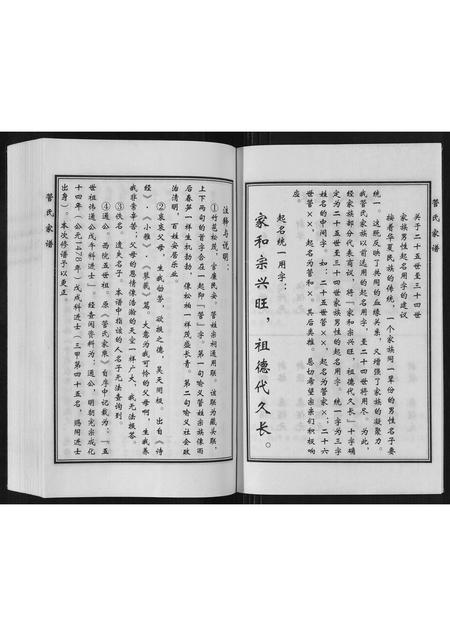 管氏家谱
关于二十五世至三十四世
家族男性起名用字的建议
按着华夏民族的传统，一个家族同一辈份的男性名子要
统一，这既反映了共同的血缘关系，又增强了家族的凝聚力。
我管氏家族以前选用的起名用字，至二十四世将用尽。为此，
经家族部分代表商议，将“家和宗兴旺，祖德代久长”十字确
定为二十五世至三十四世家族男性的起名用字。统一字为三字
姓名的中间字。如：二十五世管××，起名为管家×；二十六
世管××，起名为管和×。其后类推。恳切希望宗亲们积极响
应。
起名统一用字：
家和宗兴旺，祖德代久长。
注释与说明：
①竹苞松茂，官廉民安。管姓宗祠通用联。该联为藏头联，
上下两句的首字合在一起即“管”字。第一句喻义管姓宗族像雨
后春笋一样生机勃勃，像松柏一样茂盛长青。第二句喻义社会政
治清明，百姓安居乐业。
②哀哀父母，生我劬劳，欲报之德，昊天罔极。出自《诗
经》·《小雅》·《蓼莪》篇。大意为我可怜的父母啊，生我养
我非常辛苦；父母的恩情像浩瀚的天空一样广大，我无法报答。
③佚名。遗失名子。本谱中指该的人名子无法查询到。
④通公。西院五世祖。原《管氏家乘》自序中记载为：“五
世祖讳通公戊午科进士”，经查阅资料为：通公，明朝宪宗成化
十四年（公元1478年）戊戌科进士（三甲第四十五名，赐同进士
出身）。本次修谱予以更正。
管氏家谱